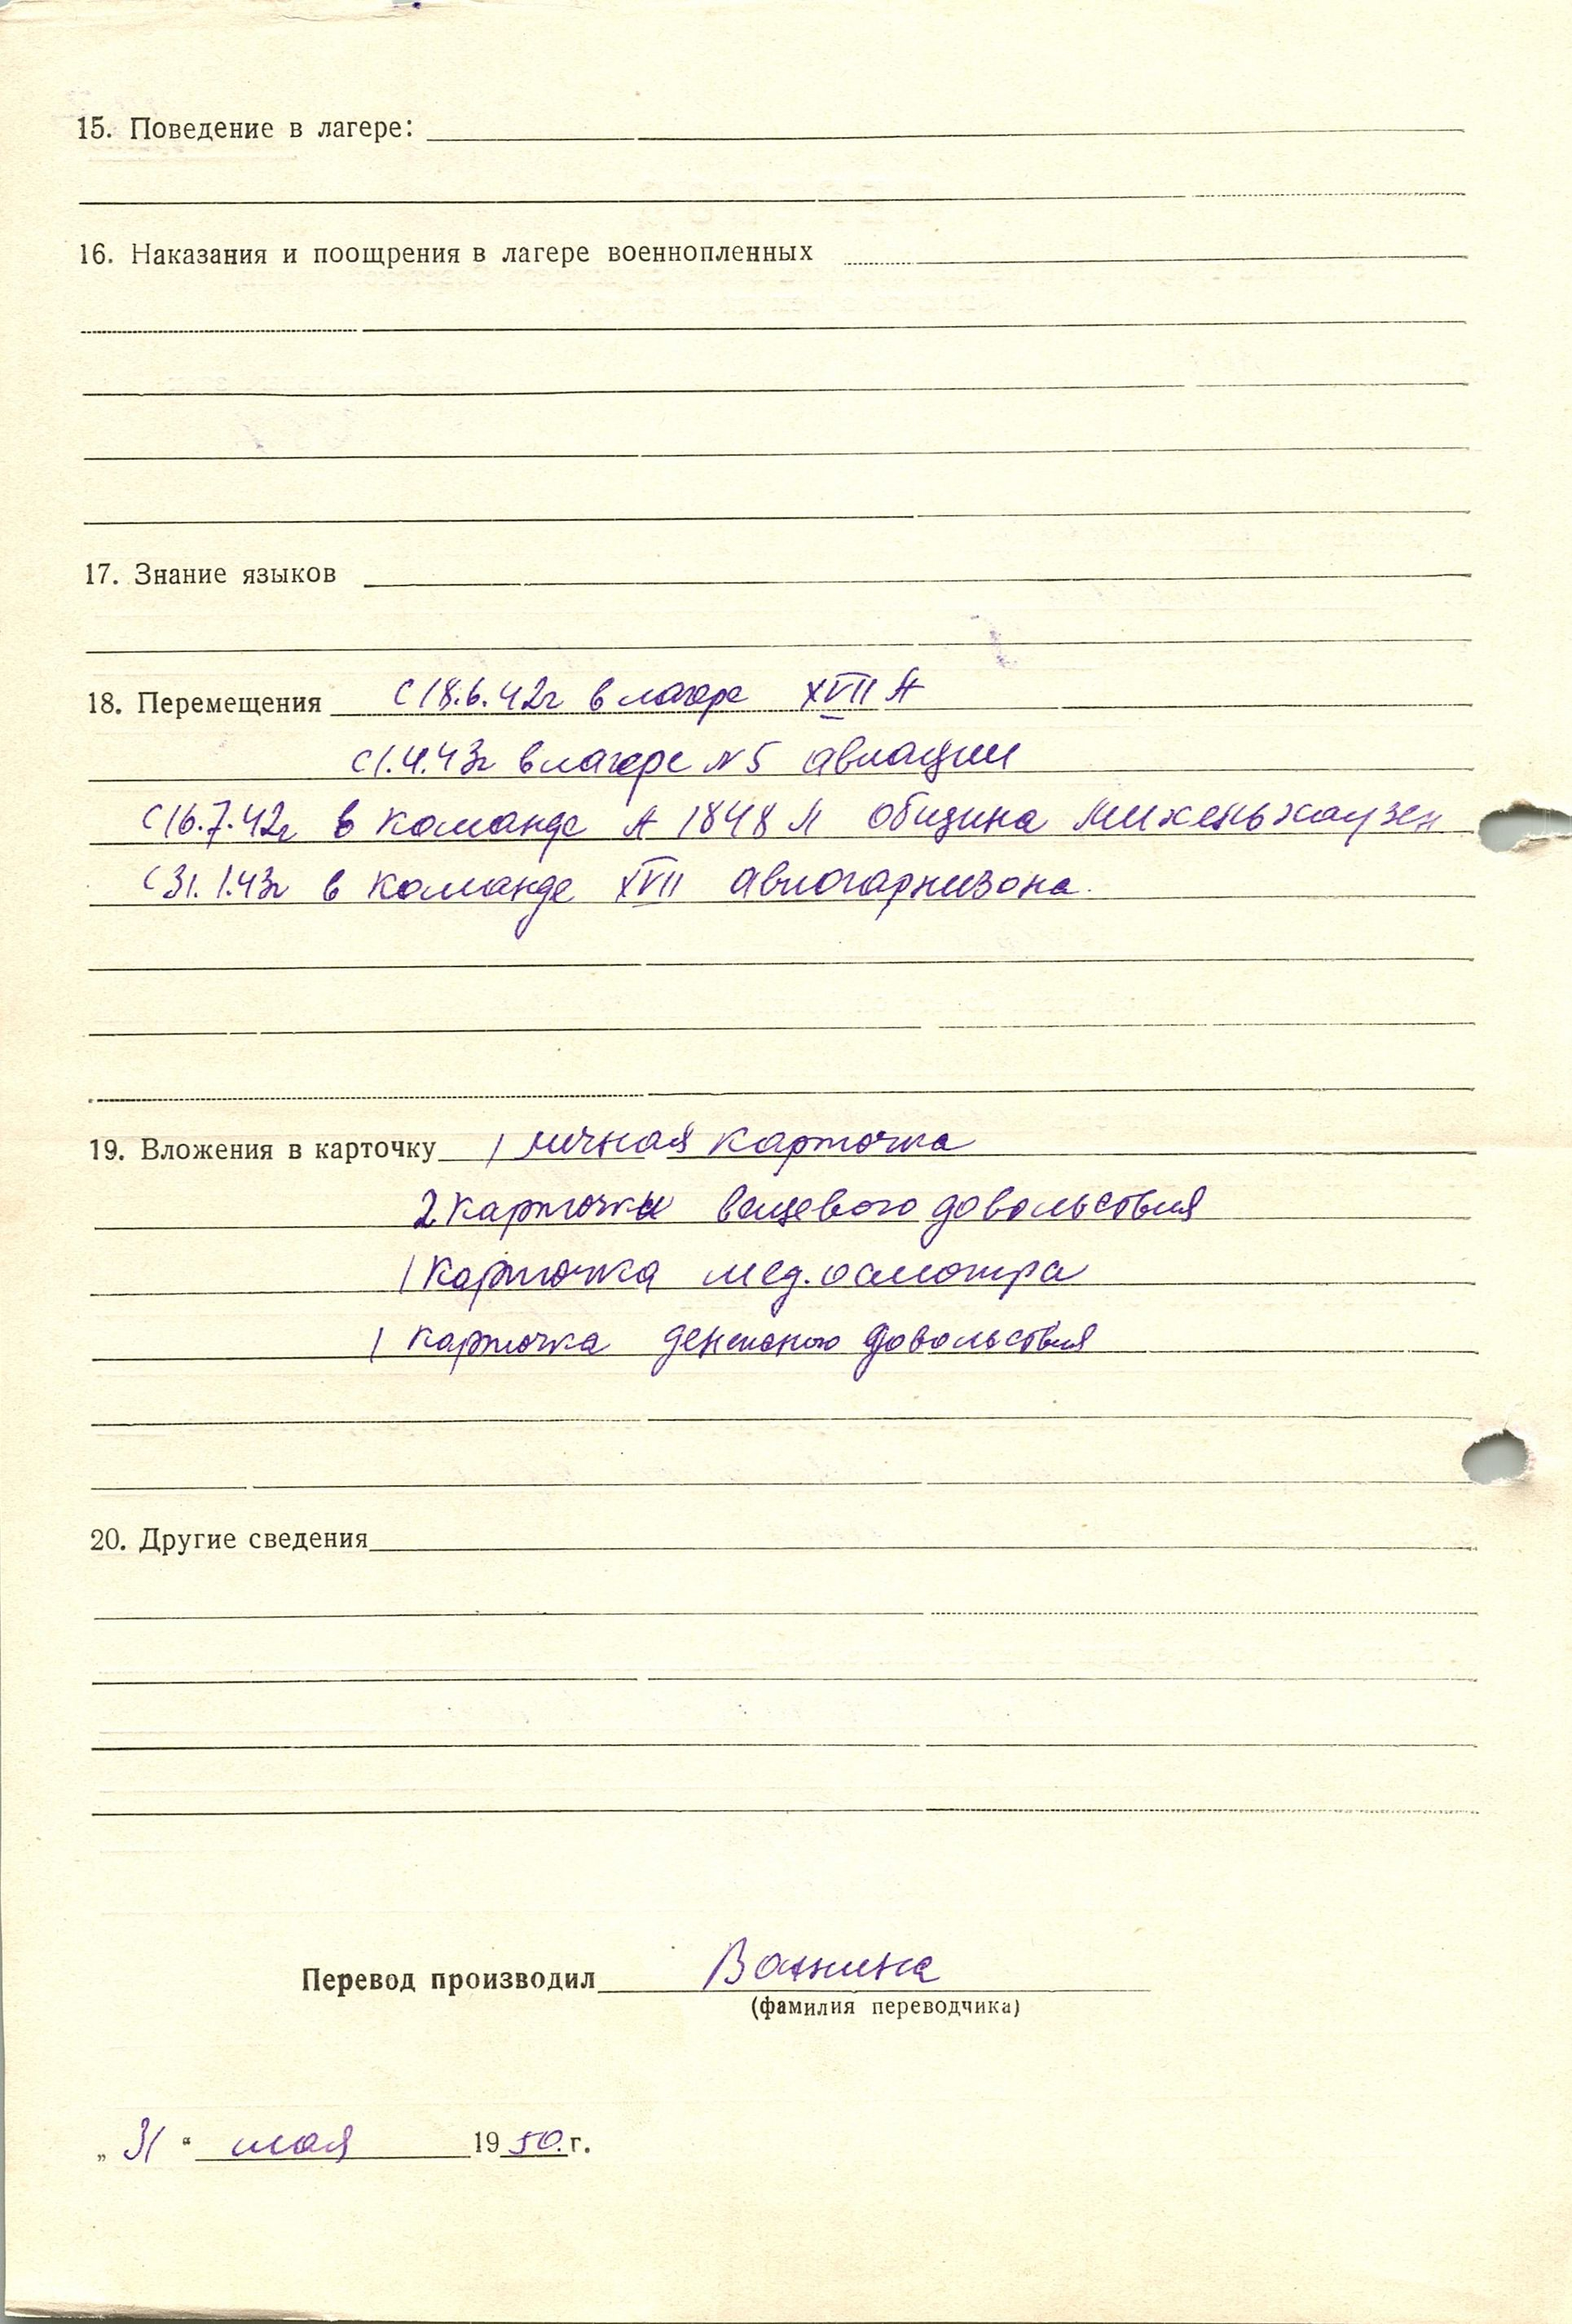 15. Поведение в лагере:
16. Наказания и поощрения в лагере военнопленных
17. Знание языков
18. Перемещения с 18.6.42г в лагере XVII А
с 1.4.43г в лагере N 5 авиации
с 16.7.42г в команде А 1848 Л община Михеньхаузен
с 31.1.43г в команде XVII авиогарнизона.
19. Вложения в карточку 1 личная карточка
2 карточки вещевого довольствия
1 карточка мед. осмотра
1 карточка денежного довольствия
20. Другие сведения
Перевод производил Ванина
(фамилия переводчика)
„ 31 “ мая 1950.г.